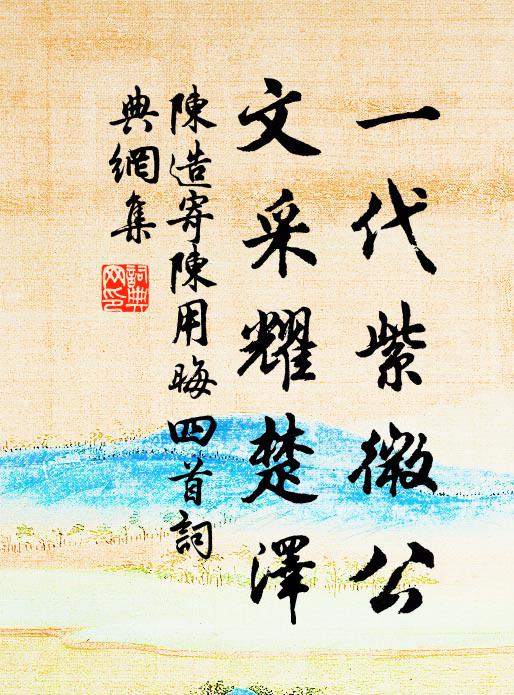 一代紫微公
文采耀楚澤
陳造寄陳用晦四首詞
典網集
詞典
网印